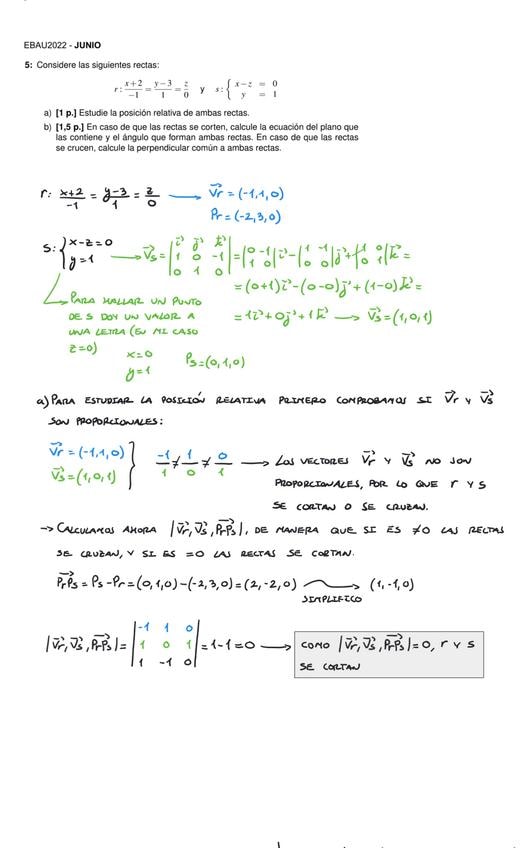 EBAU2022 - JUNIO
5: Considere las siguientes rectas:
r: x+2/-1 = y-3/1 = z/0 y s: { x-z = 0
y = 1
a) [1 p.] Estudie la posición relativa de ambas rectas.
b) [1,5 p.] En caso de que las rectas se corten, calcule la ecuación del plano que
las contiene y el ángulo que forman ambas rectas. En caso de que las rectas
se crucen, calcule la perpendicular común a ambas rectas.
r: x+2/-1 = y-3/1 = z/0 → Vr = (-1,1,0)
Pr = (-2,3,0)
s: { x-z=0 y=1 → Vs = |i j k; 1 0 -1; 0 1 0| = |0 -1; 1 0| i - |1 -1; 0 0| j + |1 0; 0 1| k =
= (0+1)i - (0-0)j + (1-0)k =
= 1i + 0j + 1k → Vs = (1,0,1)
PARA HALLAR UN PUNTO
DE S DOY UN VALOR A
UNA LETRA (EN MI CASO
z=0)
x=0
y=1
Ps=(0,1,0)
a) PARA ESTUDIAR LA POSICIÓN RELATIVA PRIMERO COMPROBAMOS SI Vr Y Vs
SON PROPORCIONALES:
Vr = (-1,1,0)
Vs = (1,0,1)
-1/1 ≠ 1/0 ≠ 0/1 → LOS VECTORES Vr Y Vs NO SON
PROPORCIONALES, POR LO QUE r Y s
SE CORTAN O SE CRUZAN.
→ CALCULAMOS AHORA |Vr, Vs, PrPs|, DE MANERA QUE SI ES ≠0 LAS RECTAS
SE CRUZAN, Y SI ES =0 LAS RECTAS SE CORTAN.
PrPs = Ps - Pr = (0,1,0) - (-2,3,0) = (2,-2,0) → (1,-1,0)
SIMPLIFICO
|Vr, Vs, PrPs| = |-1 1 0; 1 0 1; 1 -1 0| = 1-1=0 → COMO |Vr, Vs, PrPs| = 0, r Y s
SE CORTAN